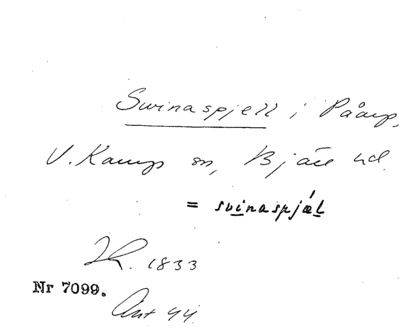 Svinaspjell i Påarp,
V. Karup sn, Bjäre hd.
= svinaspjæl
1833
Nr 7099.
Ant 44